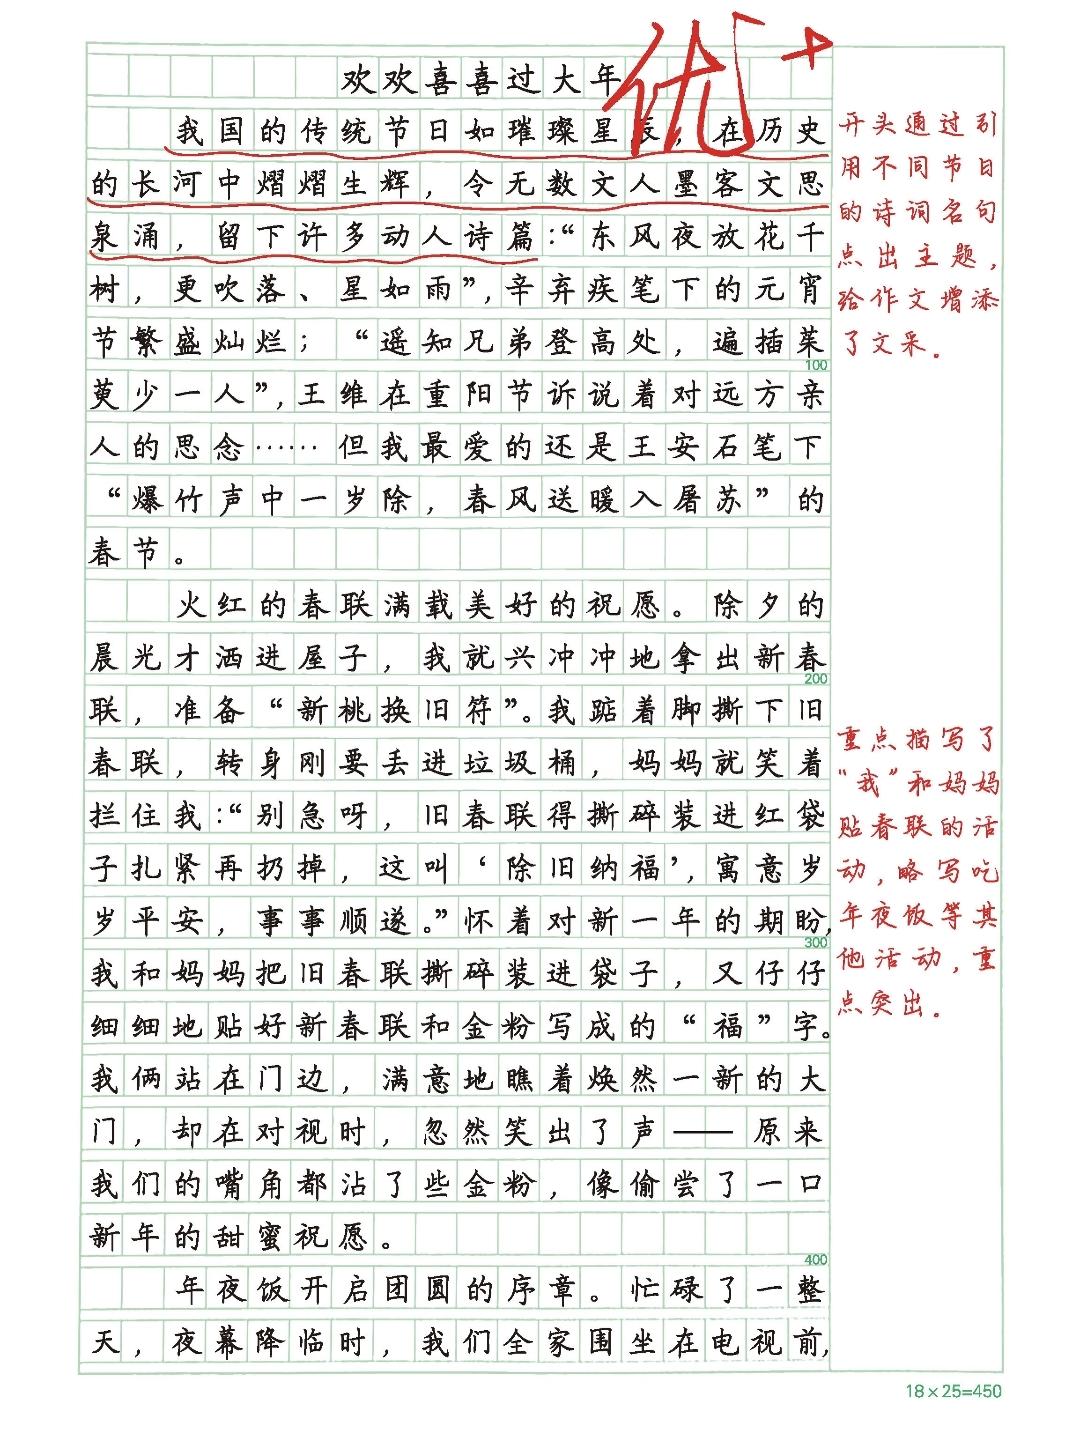 欢欢喜喜过大年
优+
我国的传统节日如璀璨星辰，在历史
的长河中熠熠生辉，令无数文人墨客文思
泉涌，留下许多动人诗篇：“东风夜放花千
树，更吹落、星如雨”，辛弃疾笔下的元宵
节繁盛灿烂；“遥知兄弟登高处，遍插茱
100
萸少一人”，王维在重阳节诉说着对远方亲
人的思念……但我最爱的还是王安石笔下
“爆竹声中一岁除，春风送暖入屠苏”的
春节。
火红的春联满载美好的祝愿。除夕的
晨光才洒进屋子，我就兴冲冲地拿出新春
200
联，准备“新桃换旧符”。我踮着脚撕下旧
春联，转身刚要丢进垃圾桶，妈妈就笑着
拦住我：“别急呀，旧春联得撕碎装进红袋
子扎紧再扔掉，这叫‘除旧纳福’，寓意岁
岁平安，事事顺遂。”怀着对新一年的期盼，
300
我和妈妈把旧春联撕碎装进袋子，又仔仔
细细地贴好新春联和金粉写成的“福”字。
我俩站在门边，满意地瞧着焕然一新的大
门，却在对视时，忽然笑出了声——原来
我们的嘴角都沾了些金粉，像偷尝了一口
新年的甜蜜祝愿。
400
年夜饭开启团圆的序章。忙碌了一整
天，夜幕降临时，我们全家围坐在电视前，
开头通过引
用不同节日
的诗词名句
点出主题，
给作文增添
了文采．
重点描写了
“我”和妈妈
贴春联的活
动，略写吃
年夜饭等其
他活动，重
点突出．
18×25=450